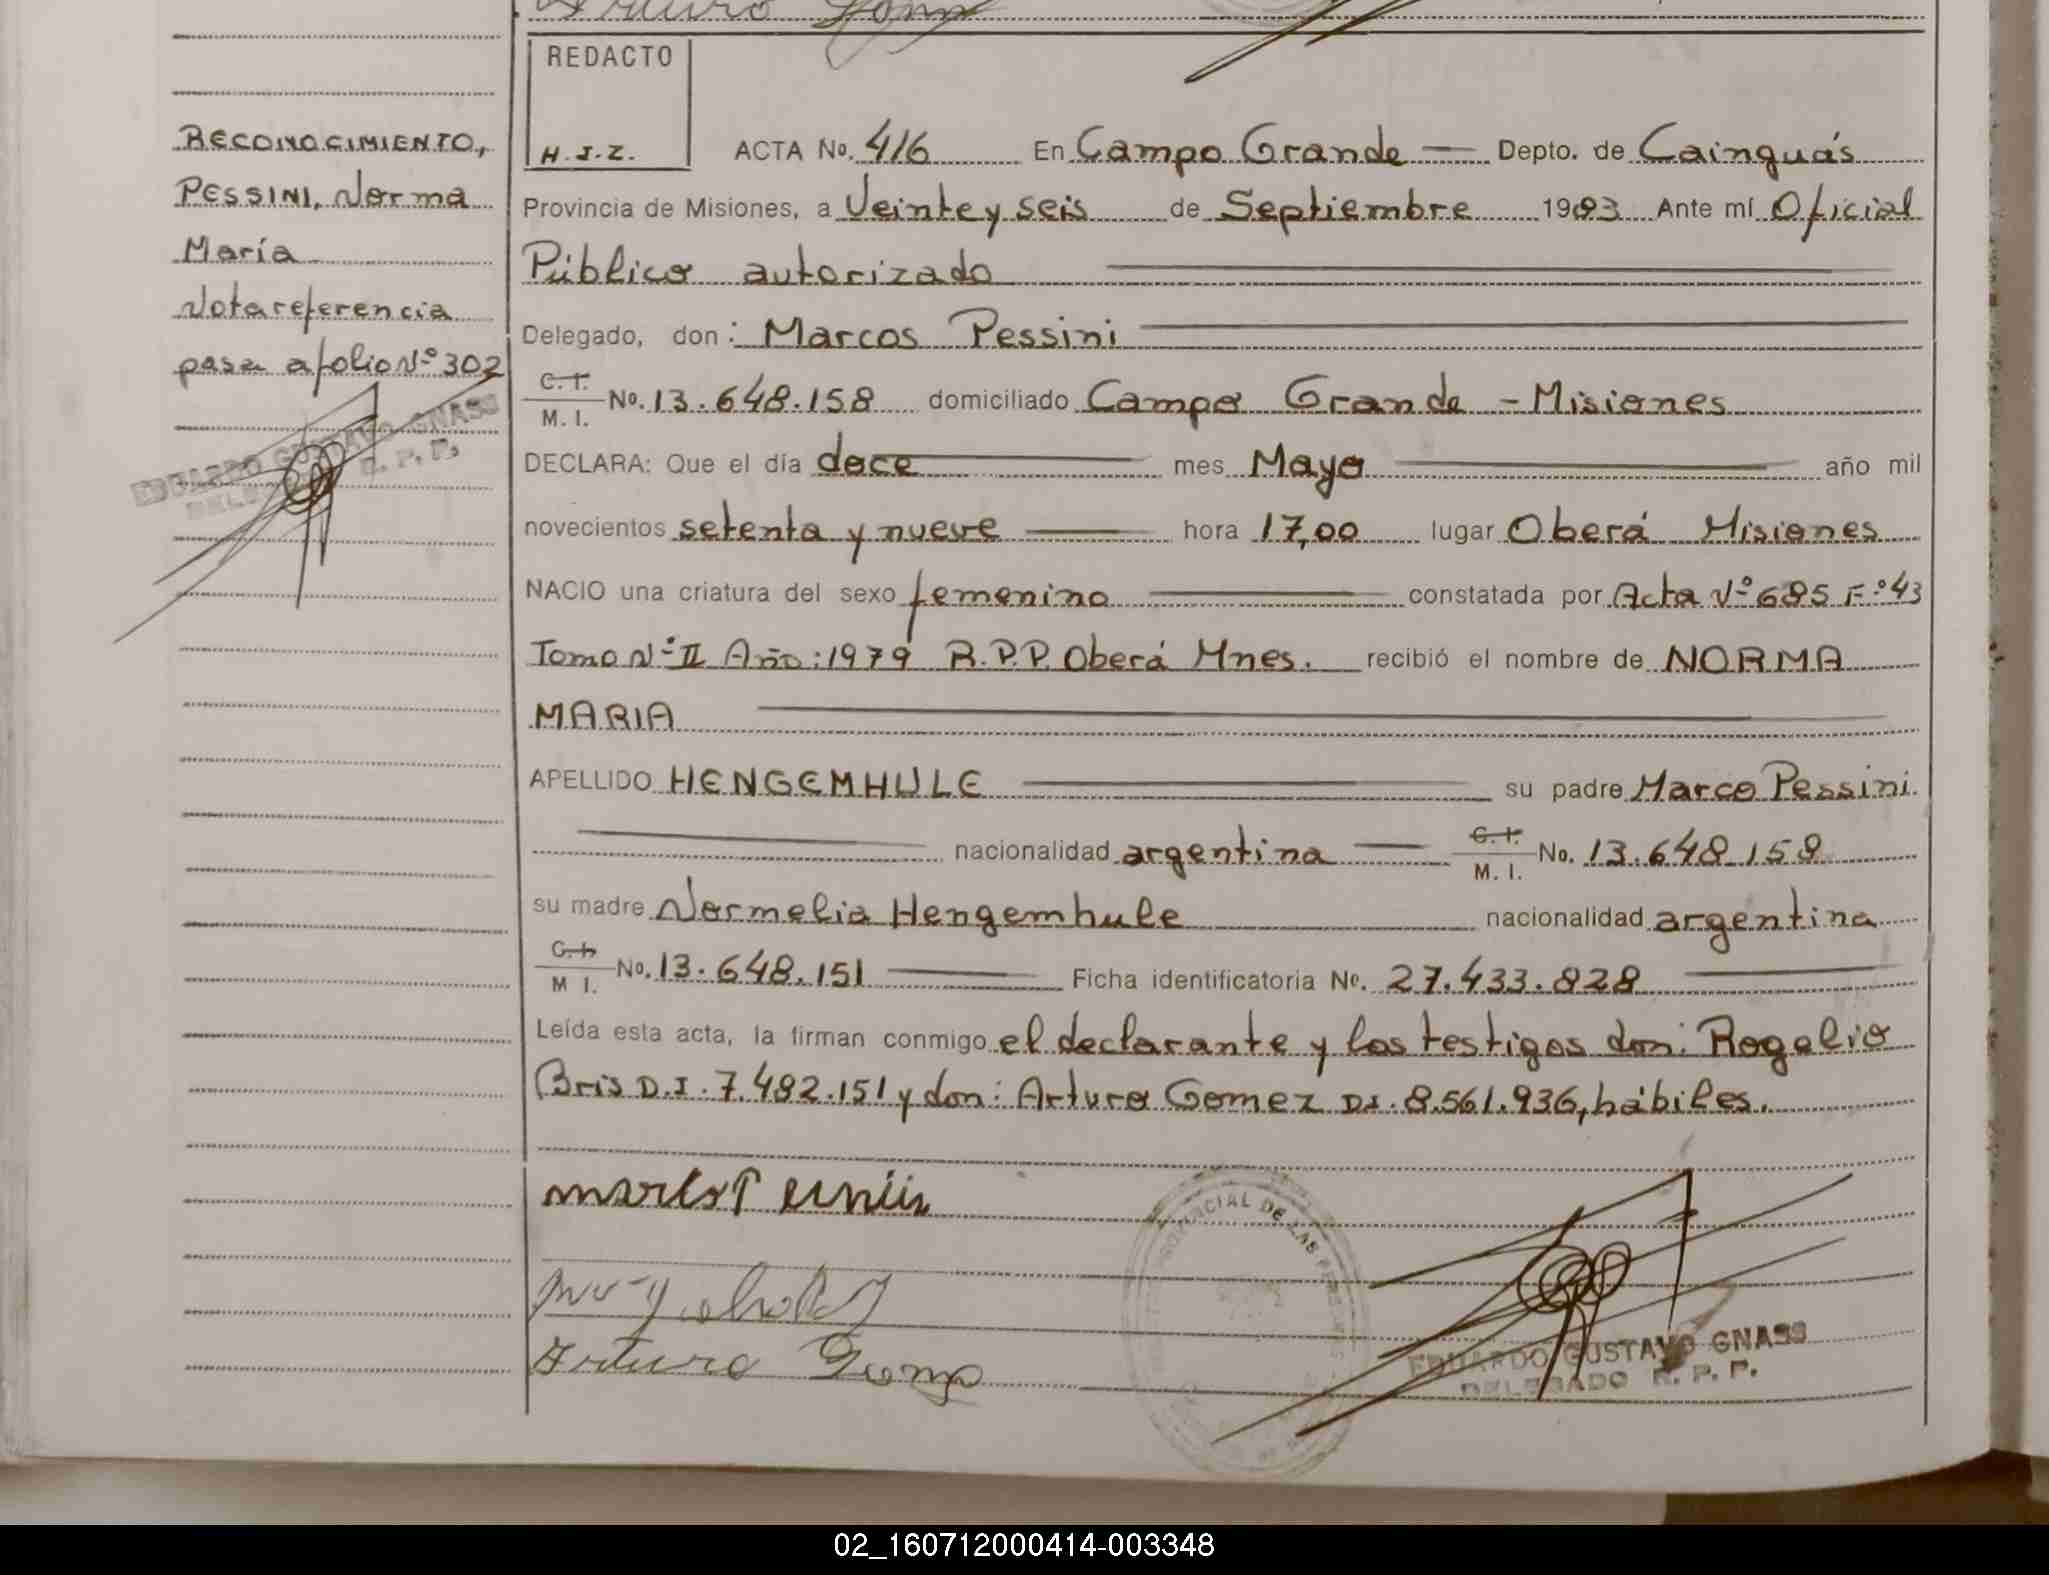 Arturo
REDACTO
H.J.Z.
RECONOCIMIENTO,
PESSINI, Norma
María
Nota referencia
pasa a folio Nº 302
EDUARDO GUSTAVO GNASS
R. P. P.
ACTA No. 416 En Campo Grande — Depto. de Cainguás
Provincia de Misiones, a Veinte y seis de Septiembre 1983 Ante mí Oficial
Público autorizado
Delegado, don: Marcos Pessini
C. I.
M. I.
No. 13.648.158 domiciliado Campo Grande - Misiones
DECLARA: Que el día doce mes Mayo año mil
novecientos setenta y nueve hora 17,00 lugar Oberá Misiones
NACIO una criatura del sexo femenino constatada por Acta Nº 685 Fº 43
Tomo Nº II Año: 1979 R.P.P. Oberá Mnes. recibió el nombre de NORMA
MARIA
APELLIDO HENGEMHULE su padre Marco Pessini.
nacionalidad argentina — C. I. M. I. No. 13.648.158
su madre Normelia Hengemhule nacionalidad argentina
C. I.
M I.
No. 13.648.151 Ficha identificatoria No. 27.433.828
Leída esta acta, la firman conmigo el declarante y los testigos don: Rogelio
Bris D.I. 7.482.151 y don: Arturo Gomez D.I. 8.561.936, hábiles.
PROVINCIAL DE LAS
Arturo Gomez
EDUARDO GUSTAVO GNASS
DELEGADO R. P. P.
02_160712000414-003348